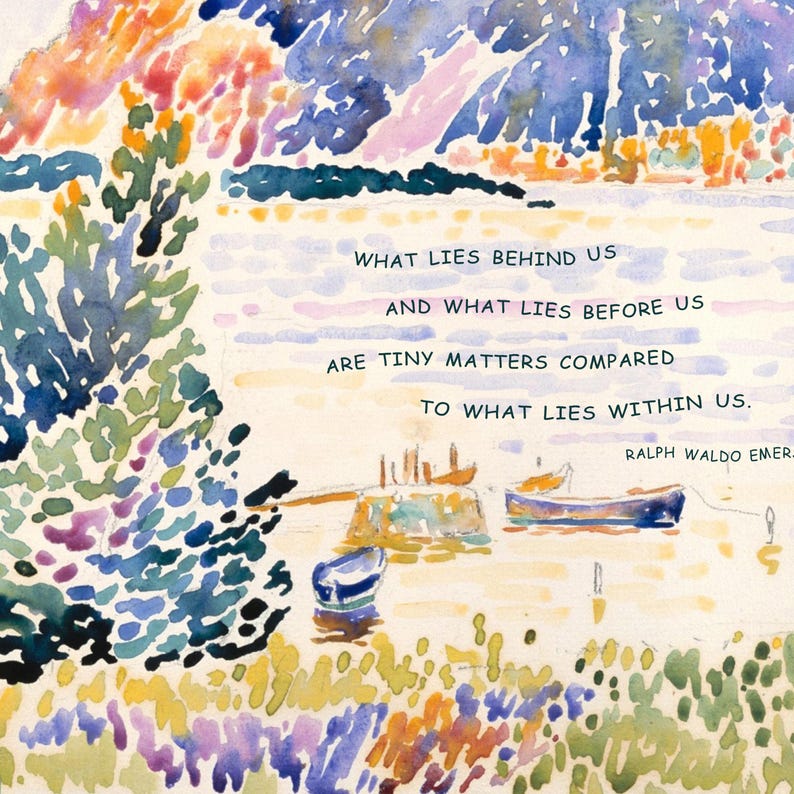 WHAT LIES BEHIND US
AND WHAT LIES BEFORE US
ARE TINY MATTERS COMPARED
TO WHAT LIES WITHIN US.
RALPH WALDO EMER